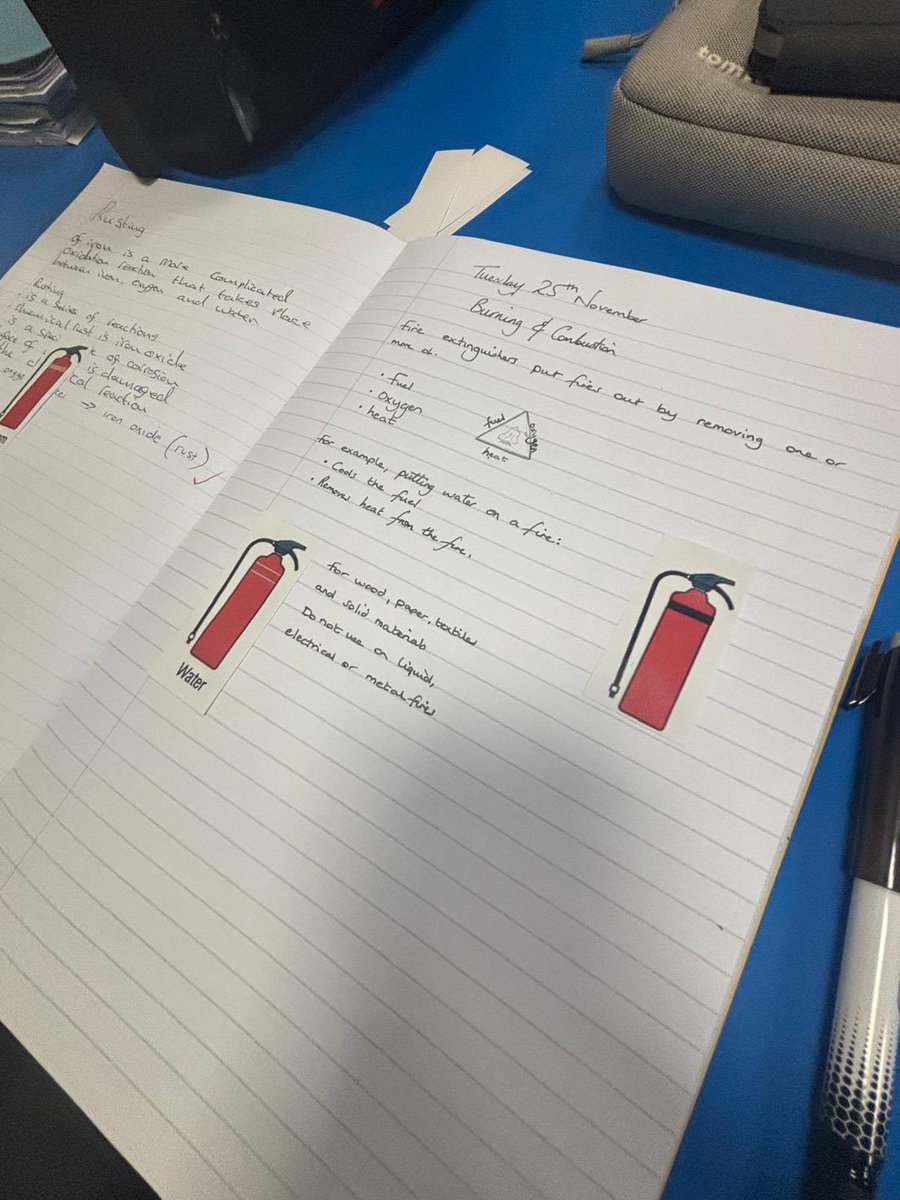 Rusting
of iron is a more complicated
oxidation reaction that takes place
between iron, oxygen and water
Rusting
• is a series of reactions
• chemical rust is iron oxide
is a spe of corrosion
face of is damaged
the c cal reaction
oxyge → iron oxide (rust)
Tuesday 25th November
Burning & Combustion
Fire extinguishers put fires out by removing one or
more of:
• Fuel
• Oxygen
• heat
fuel
oxygen
heat
For example, putting water on a fire:
• Cools the fuel
• Removes heat from the fire.
For wood, paper, textiles
and solid materials
Do not use on liquid,
electrical or metal fires
Water
tom